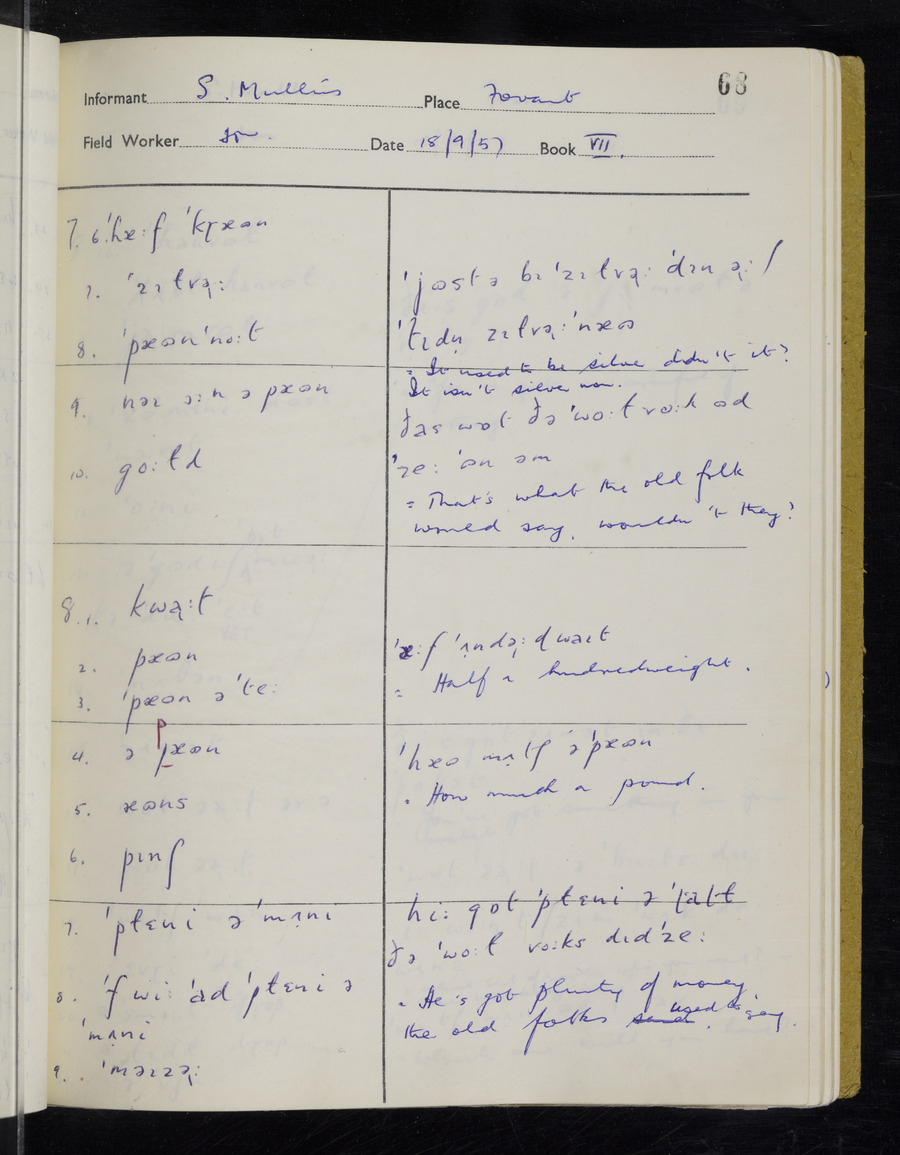 68
Informant S. Mullins Place Fovant
Field Worker Date 18/9/57 Book VII.
7. 6. ˈhæ:f ˈkɽæən
7. ˈzɪlvə̣:
8. ˈpæənˈno:t
9. nəɪ ə:n ə pæən
10. go:ld
ˈjəstə bɪ ˈzɪlvə̣: ˈdɪn ə̣: /
ˈtɪdn̩ zɪlvə̣: ˈnæə
= It used to be silver didn't it?
It isn't silver now.
ðas wət ðə ˈwo:l vo:k əd
ˈze: ˈən əm
= That's what the old folk
would say, wouldn't they?
8. 1. kwə̣:t
2. pæən
3. ˈpæən əˈte:
4. ə pæən
p
5. æəns
6. pɪnʃ
ˈæ:f ˈʌndə̣:dwaɪt
= Half a hundredweight.
ˈhæə mʌtʃ əˈpæən
= How much a pound.
7. ˈplɛni əˈmʌni
8. ˈf wi: ˈad ˈplɛni ə
ˈmʌni
9. ˈməɪzə̣:
hi: got ˈplɛni ə
ðə ˈwo:l vo:ks dɪdˈze:
= He's got plenty of money
the old folks used to say.